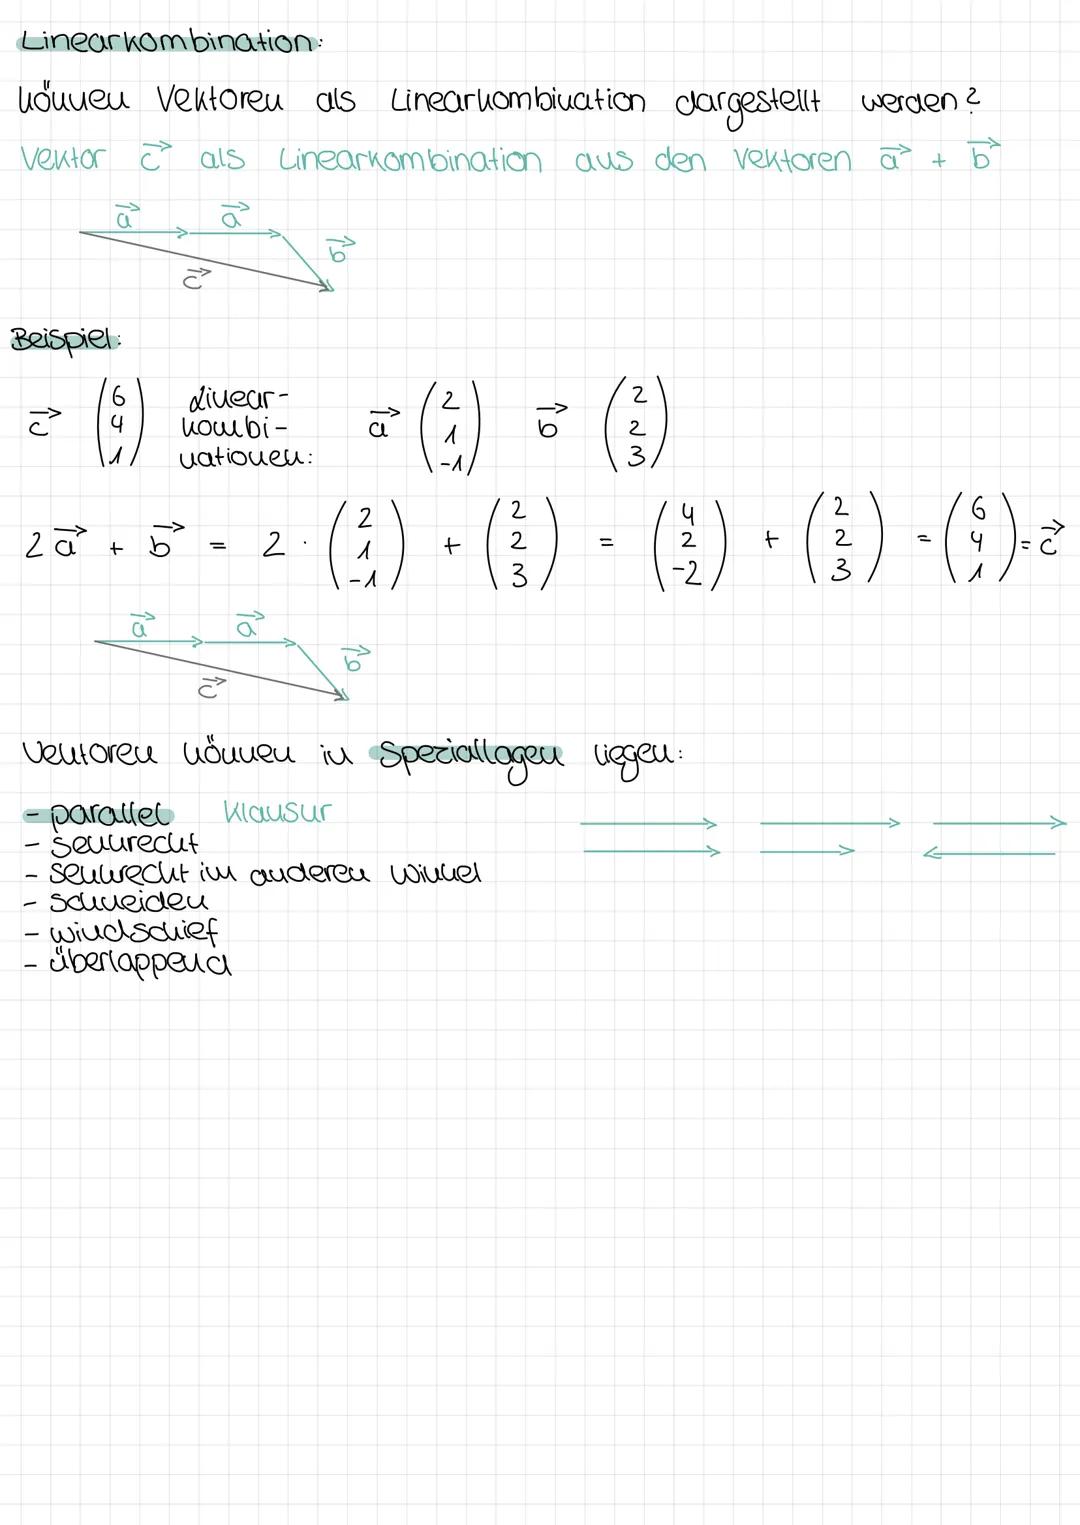 Linearkombination:
können Vektoren als Linearkombination dargestellt werden?
Vektor c⃗ als Linearkombination aus den Vektoren a⃗ + b⃗
a⃗ a⃗ b⃗
c⃗
Beispiel:
c⃗ (6 4 1) Linear-kombi-nationen: a⃗ (2 1 -1) b⃗ (2 2 3)
2a⃗ + b⃗ = 2 · (2 1 -1) + (2 2 3) = (4 2 -2) + (2 2 3) = (6 4 1) = c⃗
a⃗ a⃗ b⃗
c⃗
Vektoren können in Speziallagen liegen:
- parallel Klausur
- senkrecht
- senkrecht im anderen Winkel
- schneiden
- windschief
- überlappend